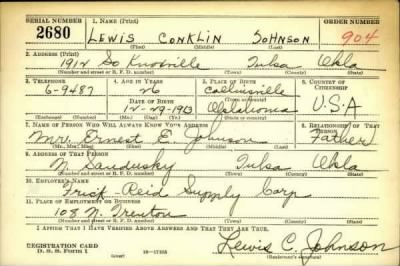 SERIAL NUMBER 1. NAME (Print) ORDER NUMBER
2680 LEWIS CONKLIN JOHNSON 904
(First) (Middle) (Last)
2. ADDRESS (Print)
1912 So Knoxville Tulsa Okla
(Number and street or R. F. D. number) (Town) (County) (State)
3. TELEPHONE 4. AGE IN YEARS 5. PLACE OF BIRTH 6. COUNTRY OF CITIZENSHIP
6-9487 26 Collinsville
DATE OF BIRTH Oklahoma U.S.A
12-29-1913
(Exchange) (Number) (Mo.) (Day) (Yr.) (State or country)
7. NAME OF PERSON WHO WILL ALWAYS KNOW YOUR ADDRESS 8. RELATIONSHIP OF THAT PERSON
Mr. Ernest E. Johnson Father
(Mr., Mrs., Miss) (First) (Middle) (Last)
9. ADDRESS OF THAT PERSON
N. Sandusky Tulsa Okla
(Number and street or R. F. D. number) (Town) (County) (State)
10. EMPLOYER'S NAME
Frick-Reid Supply Corp
11. PLACE OF EMPLOYMENT OR BUSINESS
108 N. Trenton
(Number and street or R. F. D. number) (Town) (County) (State)
I AFFIRM THAT I HAVE VERIFIED ABOVE ANSWERS AND THAT THEY ARE TRUE.
REGISTRATION CARD
D. S. S. Form 1 Lewis C. Johnson
(Registrant's signature)